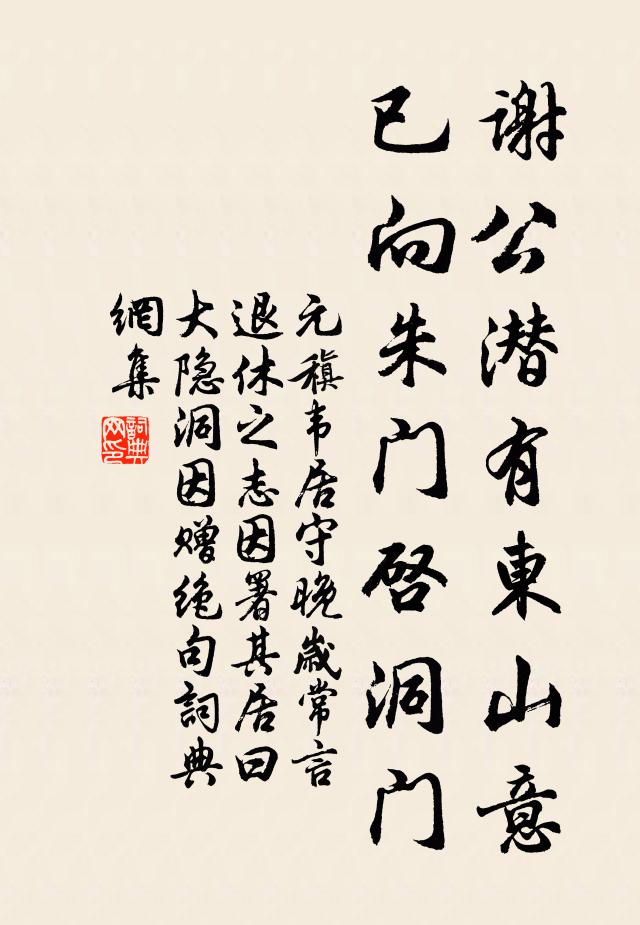 谢公潜有東山意
已向朱门启洞门
元稹韦居守晚歲常言
退休之志因署其居曰
大隐洞因赠绝句詞典
網集
詞典
网印